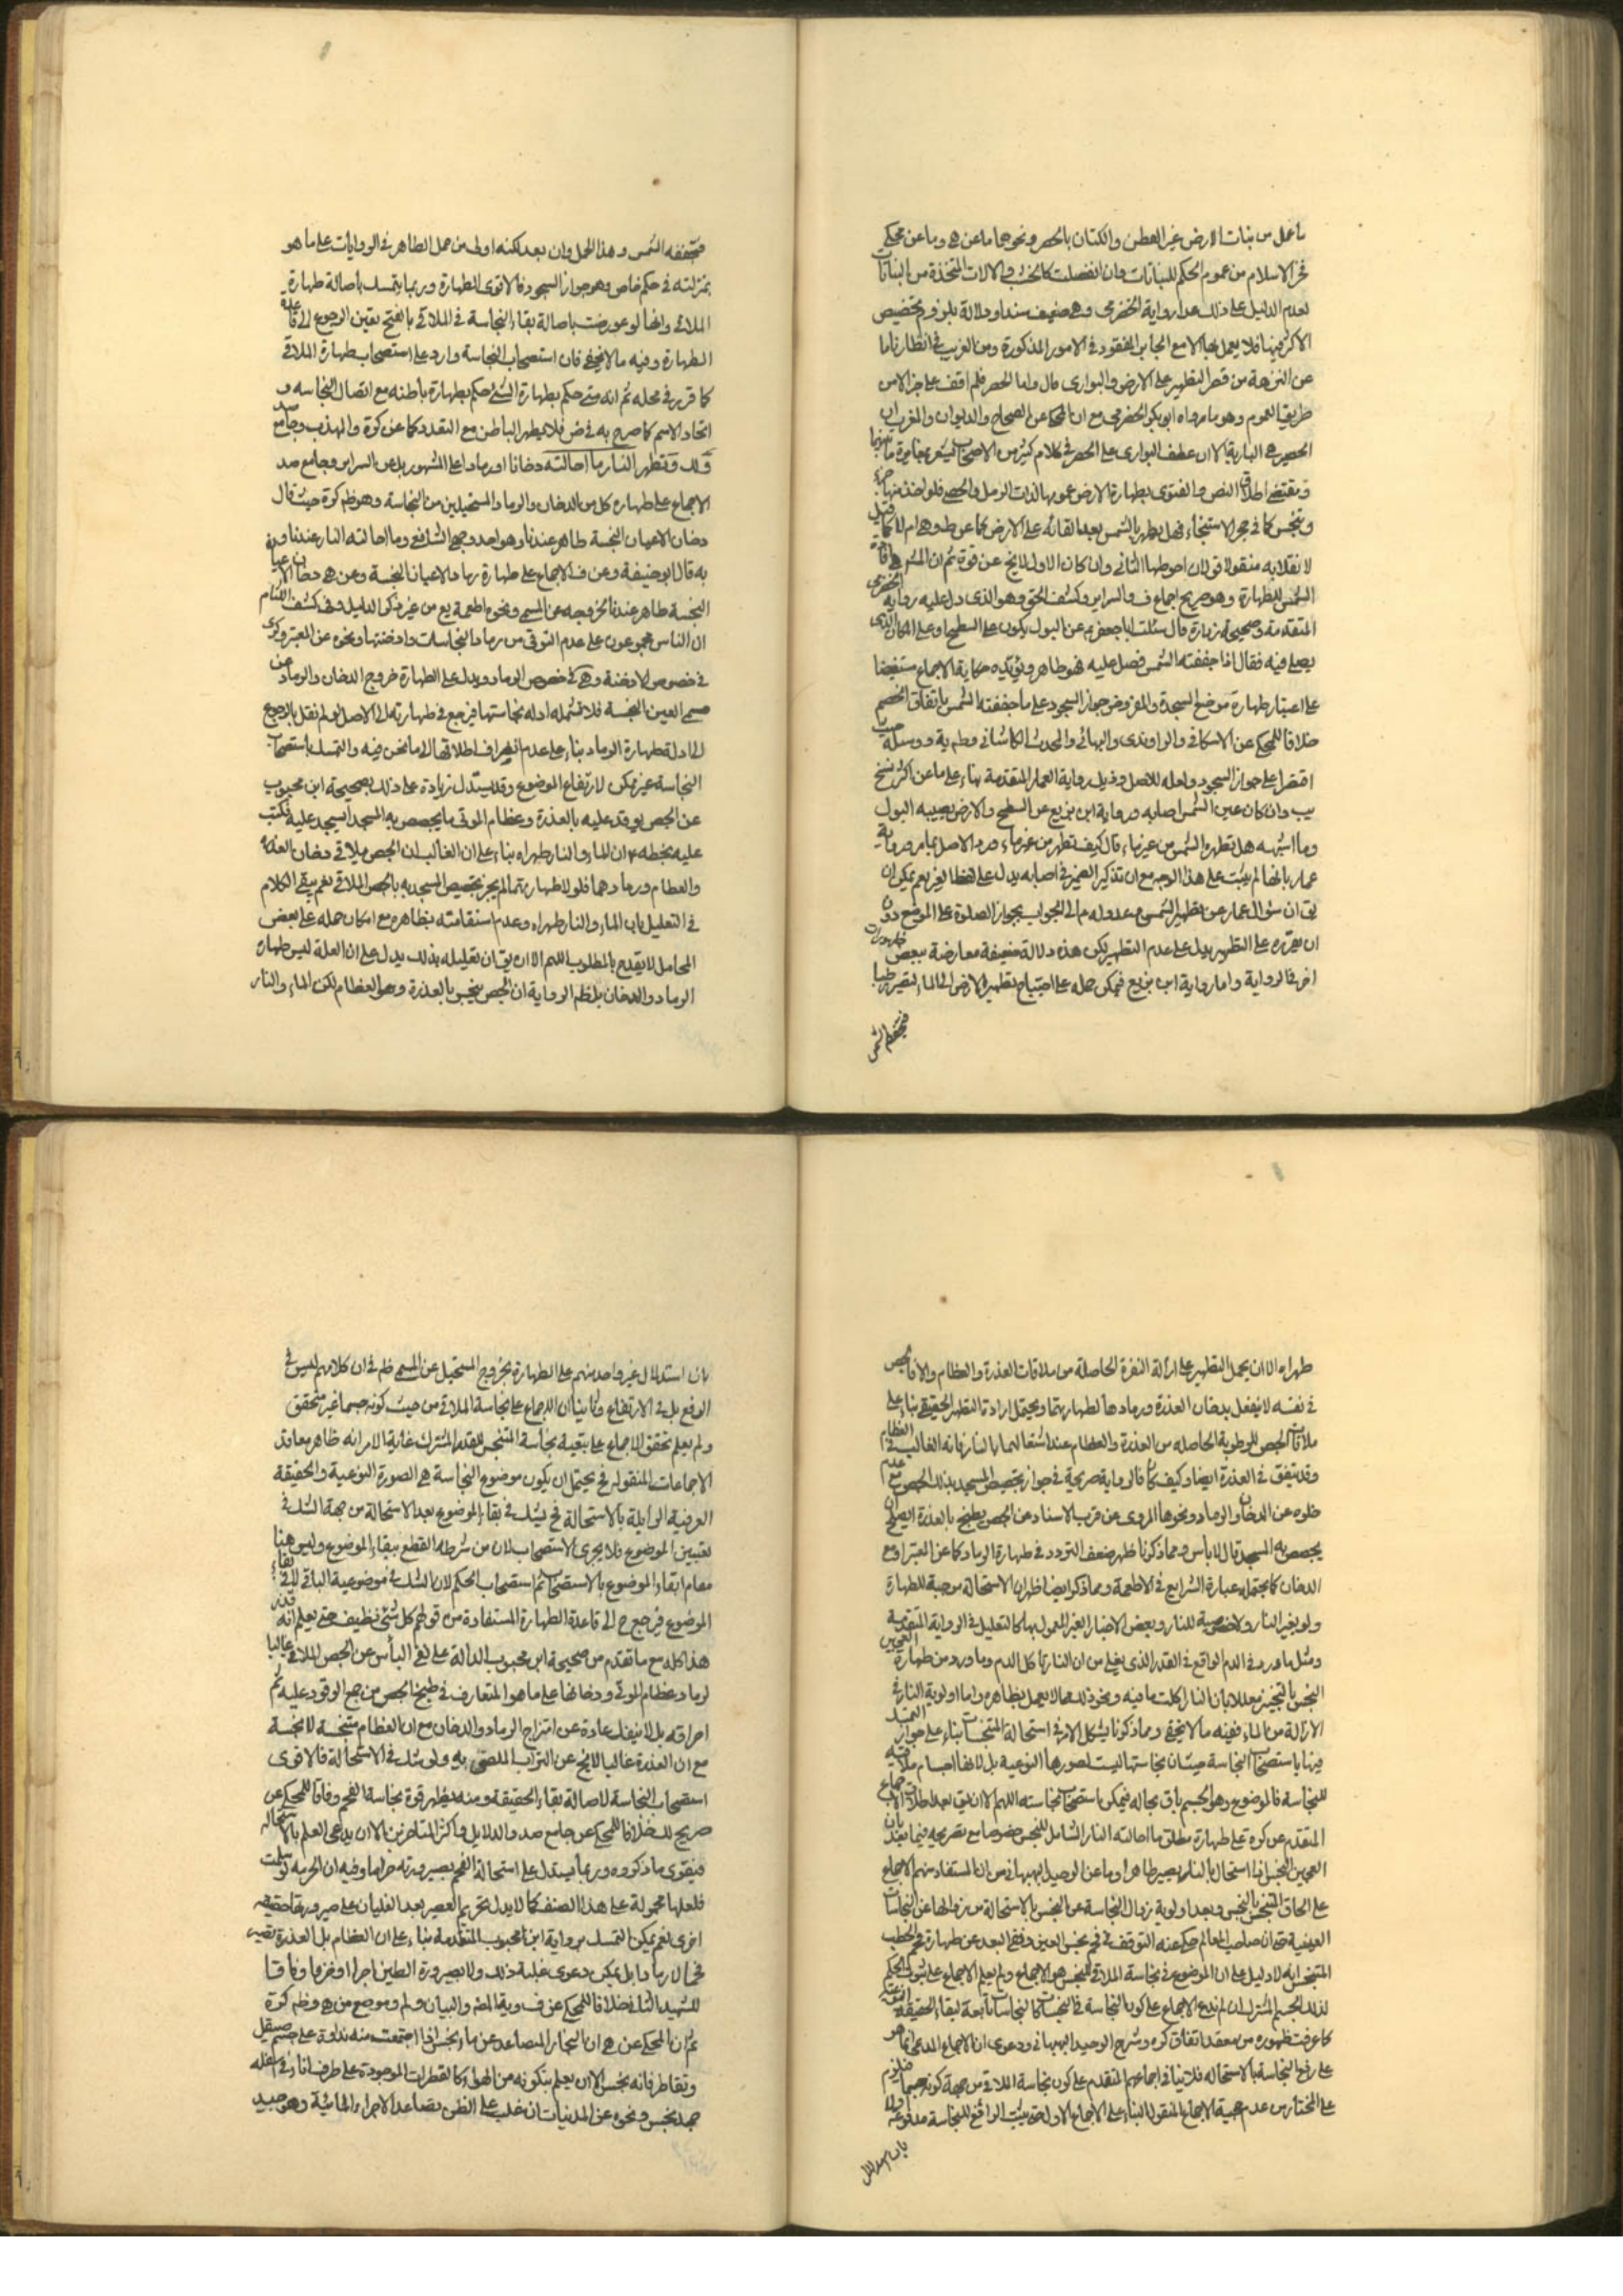 ما عمل من نبات الارض غير القطن والكتان بالحصر ونحوها ما عن هي وما عن محكي
فخر الاسلام من عموم الحكم للنباتات وان انفصلت كالخشب والالات المتخذة من النباتات
لعدم الدليل على ذلك عدا رواية الحضرمي وهي ضعيف سندا ودلالة بلزوم تخصيص
الاكثر فيها فلا يعمل بها الا مع الجابر المفقود في الامور المذكورة ومن الغريب في انظارنا ما
عن النزهة من قصر التطهير على الارض والبواري قال واما الحصر فلم اقف على خبر الا من
طريق العموم وهو ما رواه ابو بكر الحضرمي مع ان المحكي عن الصحاح والديوان والمغرب ان
الحصير هي البارية الا ان عطف البواري على الحصر في كلام كثير من الاصحاب يشعر بمغايرة ما بينهما
ومقتضى اطلاق النص والفتوى بطهارة الارض عمومها لذات الرمل والحصى فلو اخذ منها جزء
وتنجس كما في حجر الاستنجاء فهل يطهر بالشمس بعد القائه على الارض كما عن ط وهي ام لا كما قيل
لا نقلا به منقولا قولان احوطهما الثاني وان كان الاول لا يخ عن قوة ثم ان المشهور افادة
الشمس للطهارة وهو صريح اجماع ف والسراير وكشف الحق وهو الذي دل عليه رواية الحضرمي
المتقدمة وصحيحة زرارة قال سئلت ابا جعفر ع عن البول يكون على السطح او على المكان الذي
يصلي فيه فقال اذا جففته الشمس فصل عليه فهو طاهر ويؤيده حكاية الاجماع مستفيضا
على اعتبار طهارة موضع السجدة والمفروض جواز السجود على ما جففته الشمس باتفاق الخصم
خلافا للمحكي عن الاسكافي والراوندي والبهائي والمحدث الكاشاني وطم ية ووسيلة حيث
اقتصرا على جواز السجود ولعله للاصل وذيل رواية العمار المتقدمة بناء على ما عن اكثر نسخ
يب وان كان عين الشمس اصابه ورواية ابن بزيع عن السطح والارض يصيبه البول
وما اشبهه هل تطهره الشمس من غير ماء قال كيف تطهر من غير ماء ورد الاصل بما مر ورواية
عمار بانها لم يثبت على هذا الوجه مع ان تذكير الضمير في اصابه يدل على لفظ الغير نعم يمكن ان
يق ان سؤال عمار عن تطهير الشمس وعدوله ع الى الجواب بجواز الصلوة على الموضع دون
ان يقرره على التطهير يدل على عدم التطهير لكن هذه دلالة ضعيفة معارضة ببعض فقرات
اخر في الرواية واما رواية ابن بزيع فيمكن حمله على احتياج تطهير الارض الى الماء لتصير رطبا
فتجففه الشمس
فتجففه الشمس وهذا الحمل وان بعد لكنه اولى من حمل الطاهر في الروايات على ما هو
بمنزلته في حكم خاص وهو جواز السجود فالاقوى الطهارة وربما يتمسك باصالة طهارة
الملاقي وانها لو عورضت باصالة بقاء النجاسة في الملاقى بالفتح تعين الرجوع الى قاعدة
الطهارة وفيه ما لا يخفى فان استصحاب النجاسة وارد على استصحاب طهارة الملاقي
كما قرر في محله ثم انه متى حكم بطهارة الشئ حكم بطهارة باطنه مع اتصال النجاسه و
اتحاد الاسم كما صرح به في ض فلا يطهر الباطن مع التعدد كما عن كرة والمهذب وجامع صد
قوله وتطهر النار ما احالته دخانا او رمادا على المشهور بل عن السراير وجامع صد
الاجماع على طهارة كل من الدخان والرماد المستحيلين من النجاسة وهو ظم كرة حيث قال
دخان الاعيان النجسة طاهر عندنا وهو احد وجهي الشافعي وما احالته النار عندنا وبه
به قال ابو حنيفة وعن ف الاجماع على طهارة رماد الاعيان النجسة وعن هي دخان الاعيان
النجسة طاهر عندنا لخروجه عن المسمى ونحوه اطعمة يع من غير ذكر الدليل وفي كشف اللثام
ان الناس مجمعون على عدم التوقي من رماد النجاسات وادخنتها ونحوه عن المعتبر وكرى
في خصوص الادخنة وهي في خصوص الرماد ويدل على الطهارة خروج الدخان والرماد عن
مسمى العين النجسة فلا تشمله ادلة نجاستها فيرجع في طهارته الى الاصل لو لم نقل بالرجوع
الى ادلة طهارة الرماد بناء على عدم انصراف اطلاقها الى ما نحن فيه والتمسك باستصحاب
النجاسة غير ممكن لارتفاع الموضوع وقد يستدل زيادة على ذلك بصحيحة ابن محبوب
عن الجص يوقد عليه بالعذرة وعظام الموتى ما يجصص به المسجد ايسجد عليه فكتب
عليه بخطه ع ان الماء والنار طهراه بناء على ان الغالب ان الجص ملاقي دخان العذرة
والعظام ورمادهما فلولا طهارتهما لم يجز تجصيص المسجد به بالجص الملاقي نعم يبقى الكلام
في التعليل بان الماء والنار طهراه وعدم استقامته بظاهره مع امكان حمله على بعض
المحامل لا يقدح بالمطلوب اللهم الا ان يق ان تعليله بذلك يدل على ان العلة ليس طهارة
الرماد والدخان بل ظم الرواية ان الجص ينجس بالعذرة وهو العظام لكن الماء والنار
طهراه الا ان يحمل التطهير على ازالة النفرة الحاصلة من ملاقات العذرة والعظام والا فالجص
في نفسه لا ينفعل بدخان العذرة ورمادها لطهارتهما ويحتمل ارادة التطهير الحقيقي بناء على
ملاقات الجص للرطوبة الحاصله من العذرة والعظام عند اشتعالهما بالنار فانه الغالب في العظام
وقد يتفق في العذرة ايضا وكيف كان فالرواية صريحة في جواز تجصيص المسجد بذلك الجص مع عدم
خلوه عن الدخان والرماد ونحوها المروي عن قرب الاسناد عن الجص يطبخ بالعذرة ايصلح ان
يجصص به المسجد قال لا بأس ومما ذكرنا ظهر ضعف التردد في طهارة الرماد كما عن المعتبر او مع
الدخان كما يحتمله عبارة الشرايع في الاطعمة ومما ذكر ايضا ظهر ان الاستحالة موجبة للطهارة
ولو بغير النار ولا خصوصية للنار وبعض الاخبار الغير المعمول بها كالتعليل في الرواية المتقدمة
ومثل ما ورد في الدم الواقع في القدر الذي يغلي من ان النار تأكل الدم وما ورد من طهارة العجين
النجس بالتخبيز معللا بان النار اكلت ما فيه ونحو ذلك مما لا يعمل بظاهره واما اولوية النار في
الازالة من الماء ففيه ما لا يخفى ومما ذكرنا يشكل الامر في استحالة المتنجسات بناء على جواز التمسك
فيها باستصحاب النجاسة حيث ان نجاستها ليست لصورها النوعية بل لانها اجسام ملاقية
للنجاسة فالموضوع وهو الجسم باق بحاله فيمكن استصحاب نجاسته اللهم الا ان يق بعد اطلاق الاجماع
المتقدم عن كرة على طهارة مطلق ما احالته النار الشامل للمتنجس خصوصا مع تصريحه فيما بعد بان
العجين النجس اذا استحال بالنار يصير طاهرا وما عن الوحيد البهبهاني من ان المستفاد منهم الاجماع
على الحاق المتنجس بالنجس وبعد اولوية زوال النجاسة عن النجس بالاستحالة من زوالها عن النجاسات
العينية مع ان صاحب المعالم حكى عنه التوقف في فحم نجس العين ونفى البعد عن طهارة فحم الحطب
المتنجس انه لا دليل على ان الموضوع في نجاسة الملاقي للنجس هو الاجماع ولم يعلم الاجماع على ثبوت الحكم
لذلك الجسم المشترك ان لم ندع الاجماع على كون النجاسة في المتنجسات كالنجاسات تابعة لبقاء الحقيقة
كما عرفت ظهوره من معقد اتفاق كره وشرح الوحيد البهبهاني ودعوى ان الاجماع المدعى انما هو
على رفع النجاسة بالاستحالة فلا ينافي اجماعهم المتقدم على كون نجاسة الملاقي من جهة كونه جسما
على المختار من عدم حجية الاجماع المنقول البناء على الاجماع الاول حتى يثبت الرافع للنجاسة مدفوعة
بان استدلال
بان استدلال غير واحد منهم على الطهارة بخروج المستحيل عن المسمى ظم في ان كلامهم ليس في
الرفع بل في الارتفاع وثانيا ان الاجماع على نجاسة الملاقي من حيث كونه جسما غير متحقق
ولم يعلم تحقق الاجماع على تبعية نجاسة المتنجس للقدر المشترك غاية الامر انه ظاهر معاقد
الاجماعات المنقوله فح يحتمل ان يكون موضوع النجاسة هي الصورة النوعية والحقيقة
العرفية الزايلة بالاستحالة فح يشك في بقاء الموضوع بعد الاستحالة من جهة الشك في
تعيين الموضوع فلا يجرى الاستصحاب لان من شرطه القطع ببقاء الموضوع وليس هنا
مقام ابقاء الموضوع بالاستصحاب ثم استصحاب الحكم لان الشك في موضوعية الباقي لا في بقاء
الموضوع فيرجع ح الى قاعدة الطهارة المستفادة من قولهم كل شئ نظيف حتى يعلم انه قذر
هذا كله مع ما تقدم من صحيحة ابن محبوب الدالة على نفي البأس عن الجص الملاقي غالبا
لرماد عظام الموتى ودخانها على ما هو المتعارف في طبخ الجص من جمع الوقود عليه ثم
احراقه بل لا ينفك عادة عن امتزاج الرماد والدخان مع ان العظام متنجسة لا نجسة
مع ان العذرة غالبا لا يخ عن التراب الملصق به ولو شك في الاستحالة فالاقوى
استصحاب النجاسة لاصالة بقاء الحقيقة ومنه يظهر قوة نجاسة الفحم وفاقا للمحكي عن
صريح لك خلافا للمحكي عن جامع صد والدلايل واكثر المتاخرين الا ان يدعى العلم بالاستحالة
فيقوى ما ذكروه وربما يستدل على استحالة الفحم بصيرورته
فلعلها محمولة على هذا الصنف كما لا يدل تحريم العصير بعد الغليان على صيرورتها حقيقه
اخرى نعم يمكن التمسك برواية ابن محبوب المتقدمة بناء على ان العظام بل العذرة تصير
فحما لا رمادا بل يمكن دعوى غلبة ذلك ولا بصيرورة الطين اجرا او خزفا وفاقا
للشهيد الثاني خلافا للمحكي عن ف وية المض والبيان ولم وموضع من هي وظم كرة
ثم ان المحكي عن هي ان البخار المتصاعد عن ماء نجس اذا اجتمعت منه نداوة على جسم صيقل
وتقاطر فانه نجس الا ان يعلم بتكونه من الهواء كالقطرات الموجودة على طرف اناء في اسفله
جمد نجس ونحوه عن المدنيات ان غلب على الظن تصاعد الاجزاء المائية وهو جيد